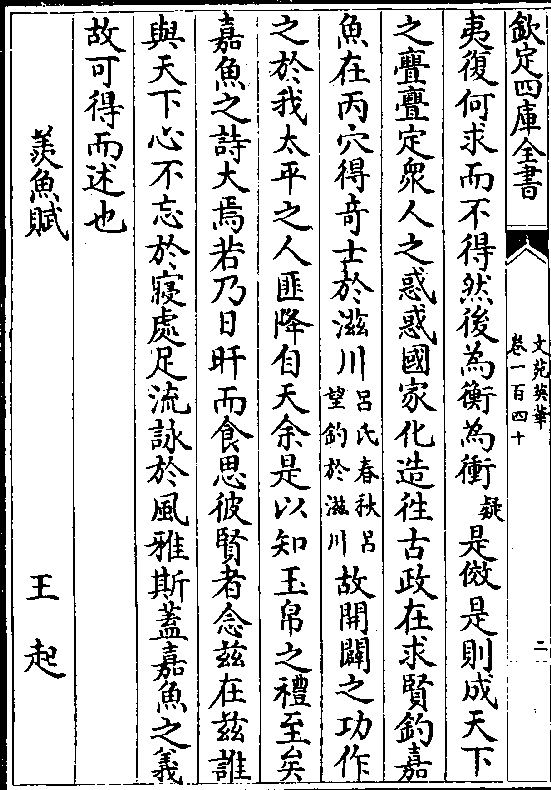 欽定四庫全書
文苑英華
卷一百四十
二
夷復何求而不得然後為衡為衝疑是傚是則成天下
之亹亹定衆人之惑惑國家化造往古政在求賢釣嘉
魚在丙穴得竒士於滋川吕氏春秋吕望釣於滋川故開闢之功作
之於我太平之人匪降自天余是以知玉帛之禮至矣
嘉魚之詩大焉若乃日旰而食思彼賢者念兹在兹誰
與天下心不忘於寢處足流詠於風雅斯蓋嘉魚之義
故可得而述也
羨魚賦 王起